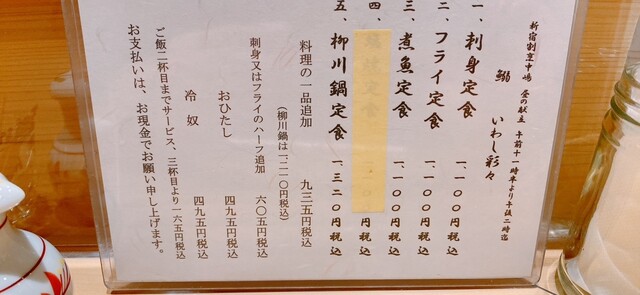 新宿割烹中嶋 昼の献立 午前十一時半より午後二時迄
鰯 いわし彩々
一、刺身定食 一、一〇〇円税込
二、フライ定食 一、一〇〇円税込
三、煮魚定食 一、一〇〇円税込
四、 円税込
五、柳川鍋定食 一、三二〇円税込
料理の一品追加 九三五円税込
(柳川鍋は一二一〇円税込)
刺身又はフライのハーフ追加 六〇五円税込
おひたし 四九五円税込
冷奴 四九五円税込
ご飯二杯目までサービス、三杯目より一六五円税込
お支払いは、お現金でお願い申し上げます。